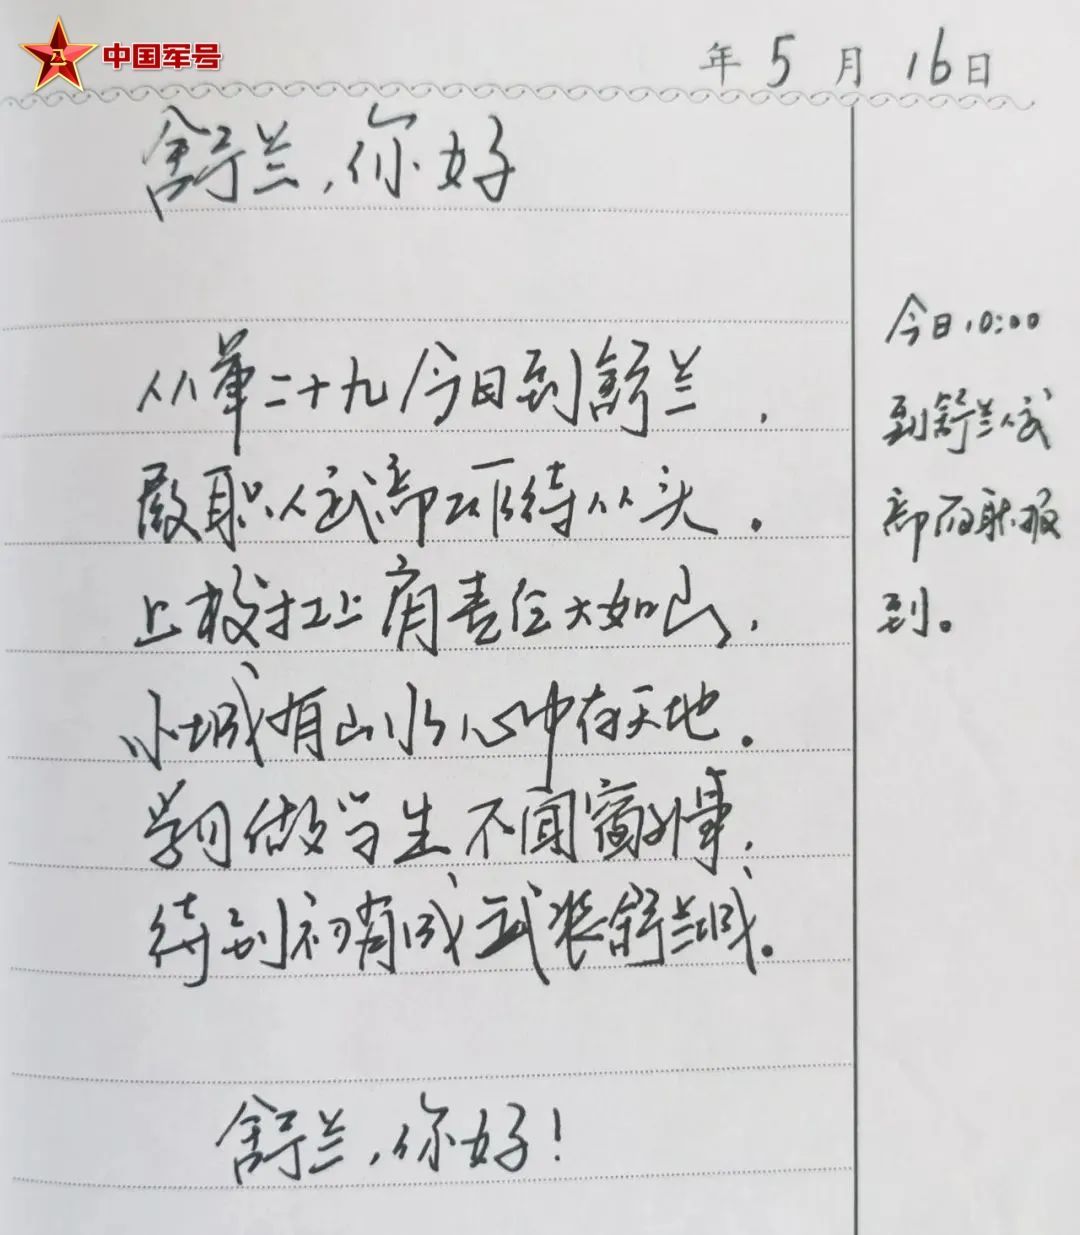 中国军号
年5月16日
舒兰,你好
从军二十九 今日到舒兰,
履职人武部 一切待从头。
上校扛上肩 责任大如山,
小城有山水 心中存天地。
学习做学生 不闻窗外事,
待到初有成 武装舒兰城。
舒兰,你好!
今日10:00
到舒兰人武
部而职报
到。